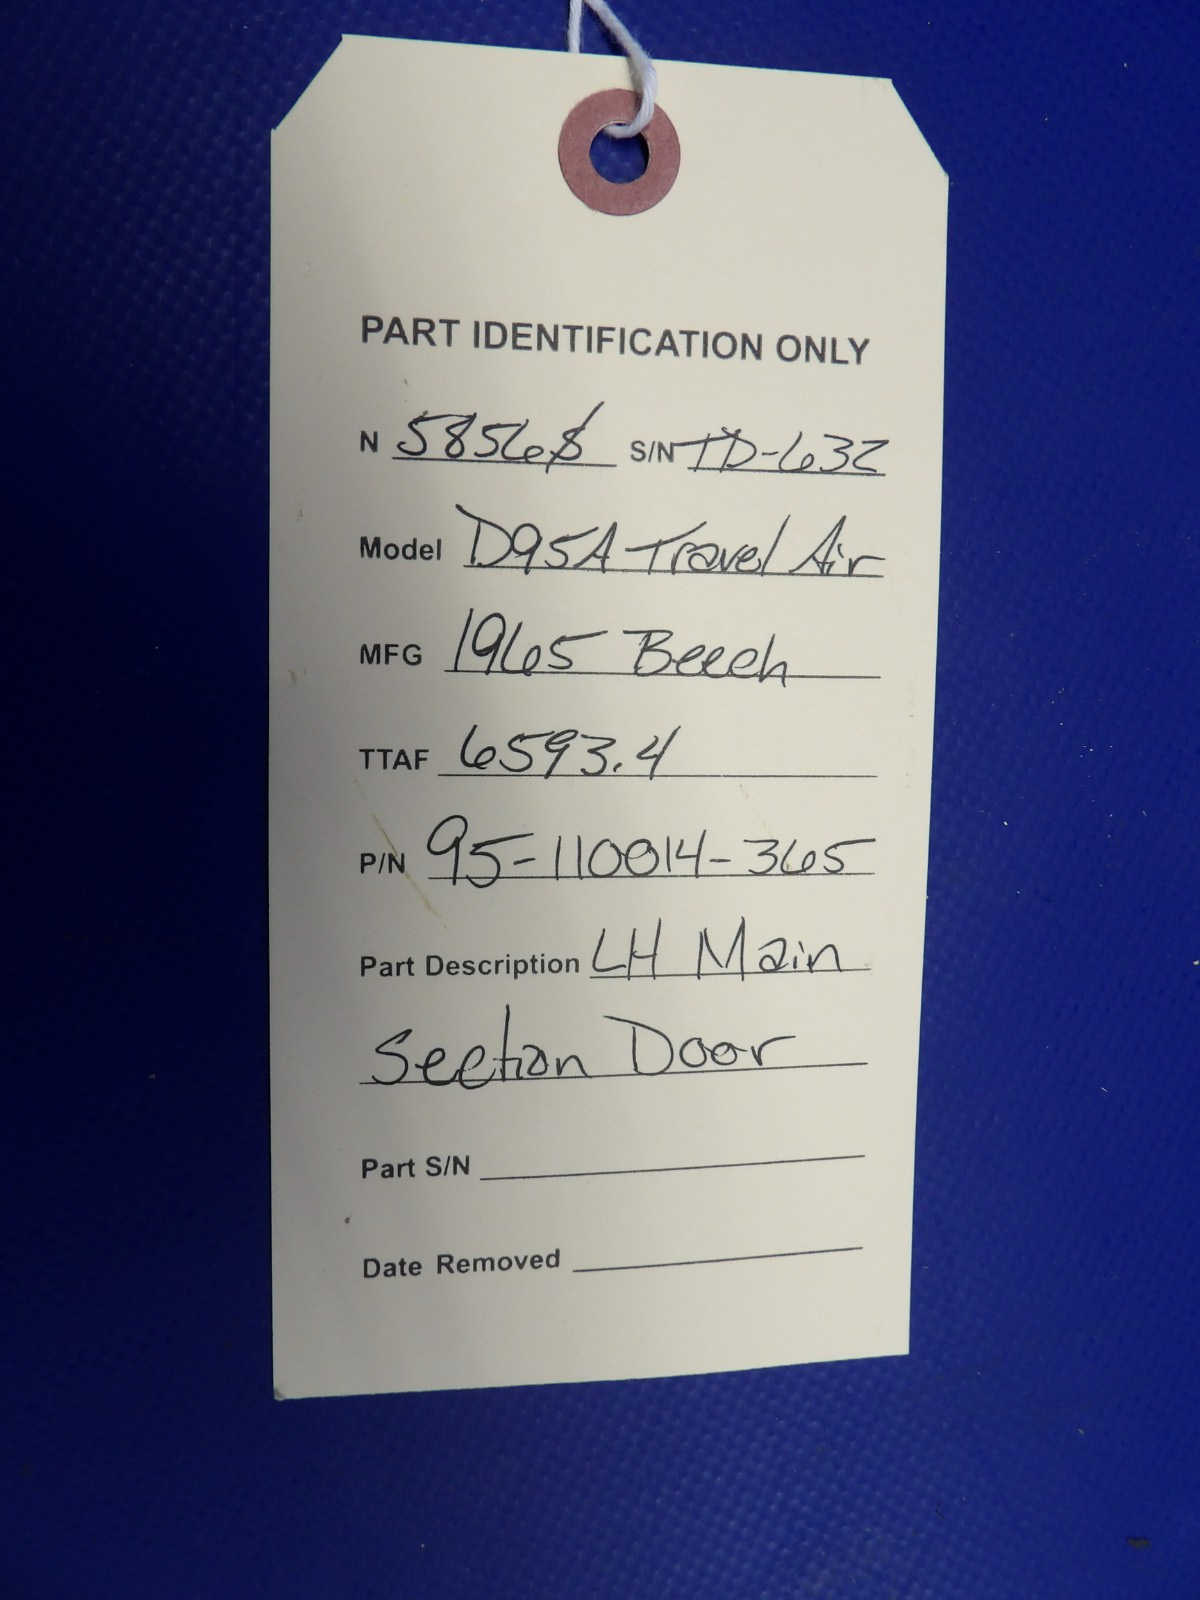 PART IDENTIFICATION ONLY
N 5856S S/N TD-632
Model D95A Travel Air
MFG 1965 Beech
TTAF 6593.4
P/N 95-110014-365
Part Description LH Main
Section Door
Part S/N
Date Removed